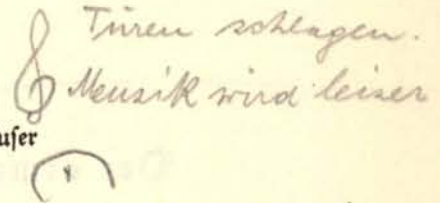 Türen schlagen.
Musik wird leiser